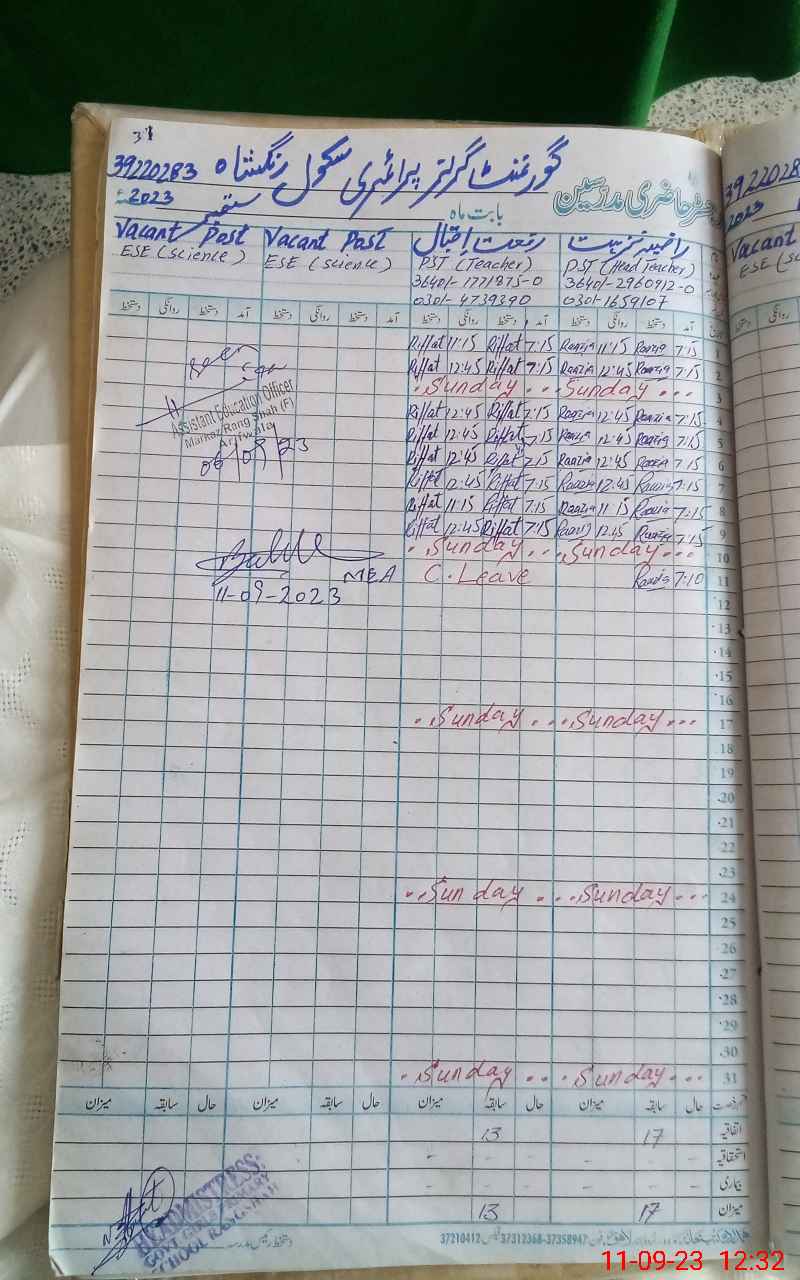 31
39220283 گورنمنٹ گرلز پرائمری سکول رنگشاہ
رجسٹر حاضری مدرسین بابت ماہ ستمبر 2023ء
Vacant Post Vacant Post رفعت اقبال راضیہ
ESE (Science) ESE (science) PST (Teacher) PST (Head Teacher)
36401-1771875-0 36401-2960912-0
0301-4739390 0301-1659107
دستخط روانگی دستخط آمد دستخط روانگی دستخط آمد دستخط روانگی دستخط آمد دستخط روانگی دستخط آمد
Riffat 11:15 Riffat 7:15 Raazia 11:15 Raazia 7:15 1
Riffat 12:45 Riffat 7:15 Raazia 12:45 Raazia 7:15 2
..Sunday...Sunday... 3
Riffat 12:45 Riffat 7:15 Raazia 12:45 Raazia 7:15 4
Riffat 12:45 Riffat 7:15 Raazia 12:45 Raazia 7:15 5
Riffat 12:45 Riffat 7:15 Raazia 12:45 Raazia 7:15 6
Riffat 12:45 Riffat 7:15 Raazia 12:45 Raazia 7:15 7
Riffat 11:15 Riffat 7:15 Raazia 11:15 Raazia 7:15 8
Riffat 12:45 Riffat 7:15 Raazia 12:45 Raazia 7:15 9
.Sunday...Sunday... 10
C.Leave Raazia 7:10 11
Seen
Assistant Education Officer
Markaz Rang Shah (F)
Arifwala
06/09/23
MEA
11-09-2023
12
13
14
15
16
..Sunday...Sunday... 17
18
19
20
21
22
23
..Sunday...Sunday... 24
25
26
27
28
29
30
.Sunday...Sunday... 31
میزان سابقہ حال میزان سابقہ حال میزان سابقہ حال میزان سابقہ حال
13 17 اتفاقیہ
- - - - استحقاقیہ
- - - - بیماری
13 17 میزان
HEADMISTRESS
GOVT. GIRLS PRIMARY
SCHOOL RANGSHAH
37210412 37312368-37358947
39220283
2023
Vacant
ESE (Sc
دستخط روانگی
11-09-23 12:32